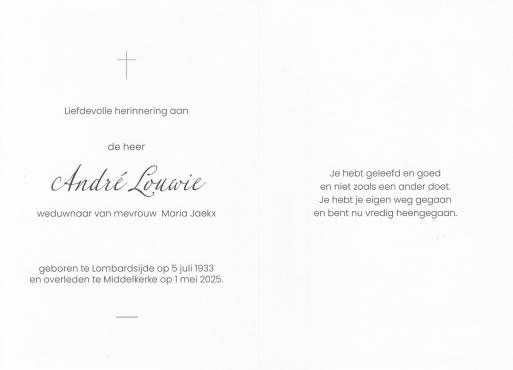 Liefdevolle herinnering aan
de heer
André Louwie
weduwnaar van mevrouw Maria Jaekx
geboren te Lombardsijde op 5 juli 1933
en overleden te Middelkerke op 1 mei 2025.
Je hebt geleefd en goed
en niet zoals een ander doet.
Je hebt je eigen weg gegaan
en bent nu vredig heengegaan.